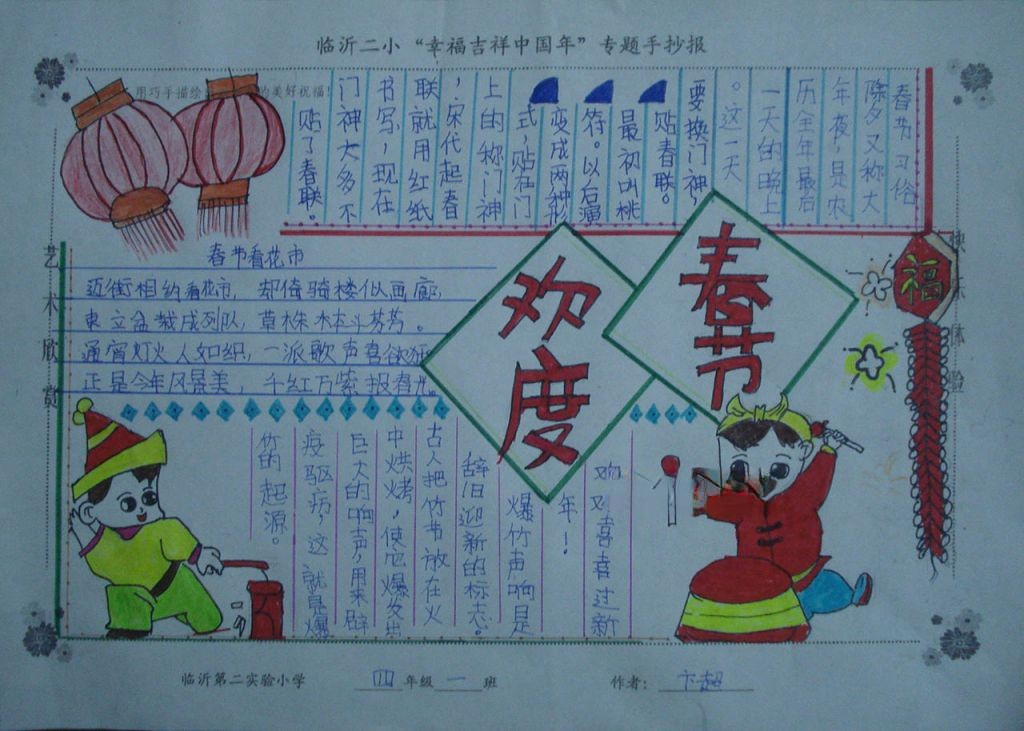 临沂二小“幸福吉祥中国年”专题手抄报
用巧手描绘
的美好祝福！
春节习俗
除夕又称大
年夜，是农
历全年最后
一天的晚上
。这一天
要换门神，
贴春联。
最初叫桃
符。以后演
变成两种形
式，贴在门
上的称门神
，宋代起春
联就用红纸
书写，现在
门神大多不
贴了春联。
福
春节
欢度
春节看花市
迈街相约看花市，却倚骑楼似画廊，
束立盆栽成列队，草株木本斗芬芳。
通宵灯火人如织，一派歌声喜欲狂
正是今年风景美，千红万紫报春光。
艺术欣赏
快乐体验
欢欢喜喜过新
年！
爆竹声响是
辞旧迎新的标志。
古人把竹节放在火
中烘烤，使它爆发出
巨大的响声，用来辟
疫驱病，这就是爆
竹的起源。
临沂第二实验小学 四年级一班 作者：卞超